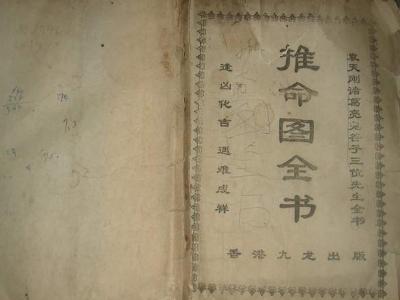 袁天刚诸葛亮鬼谷子三位先生全书
推命图全书
逢凶化吉 遇难成祥
香港九龙出版